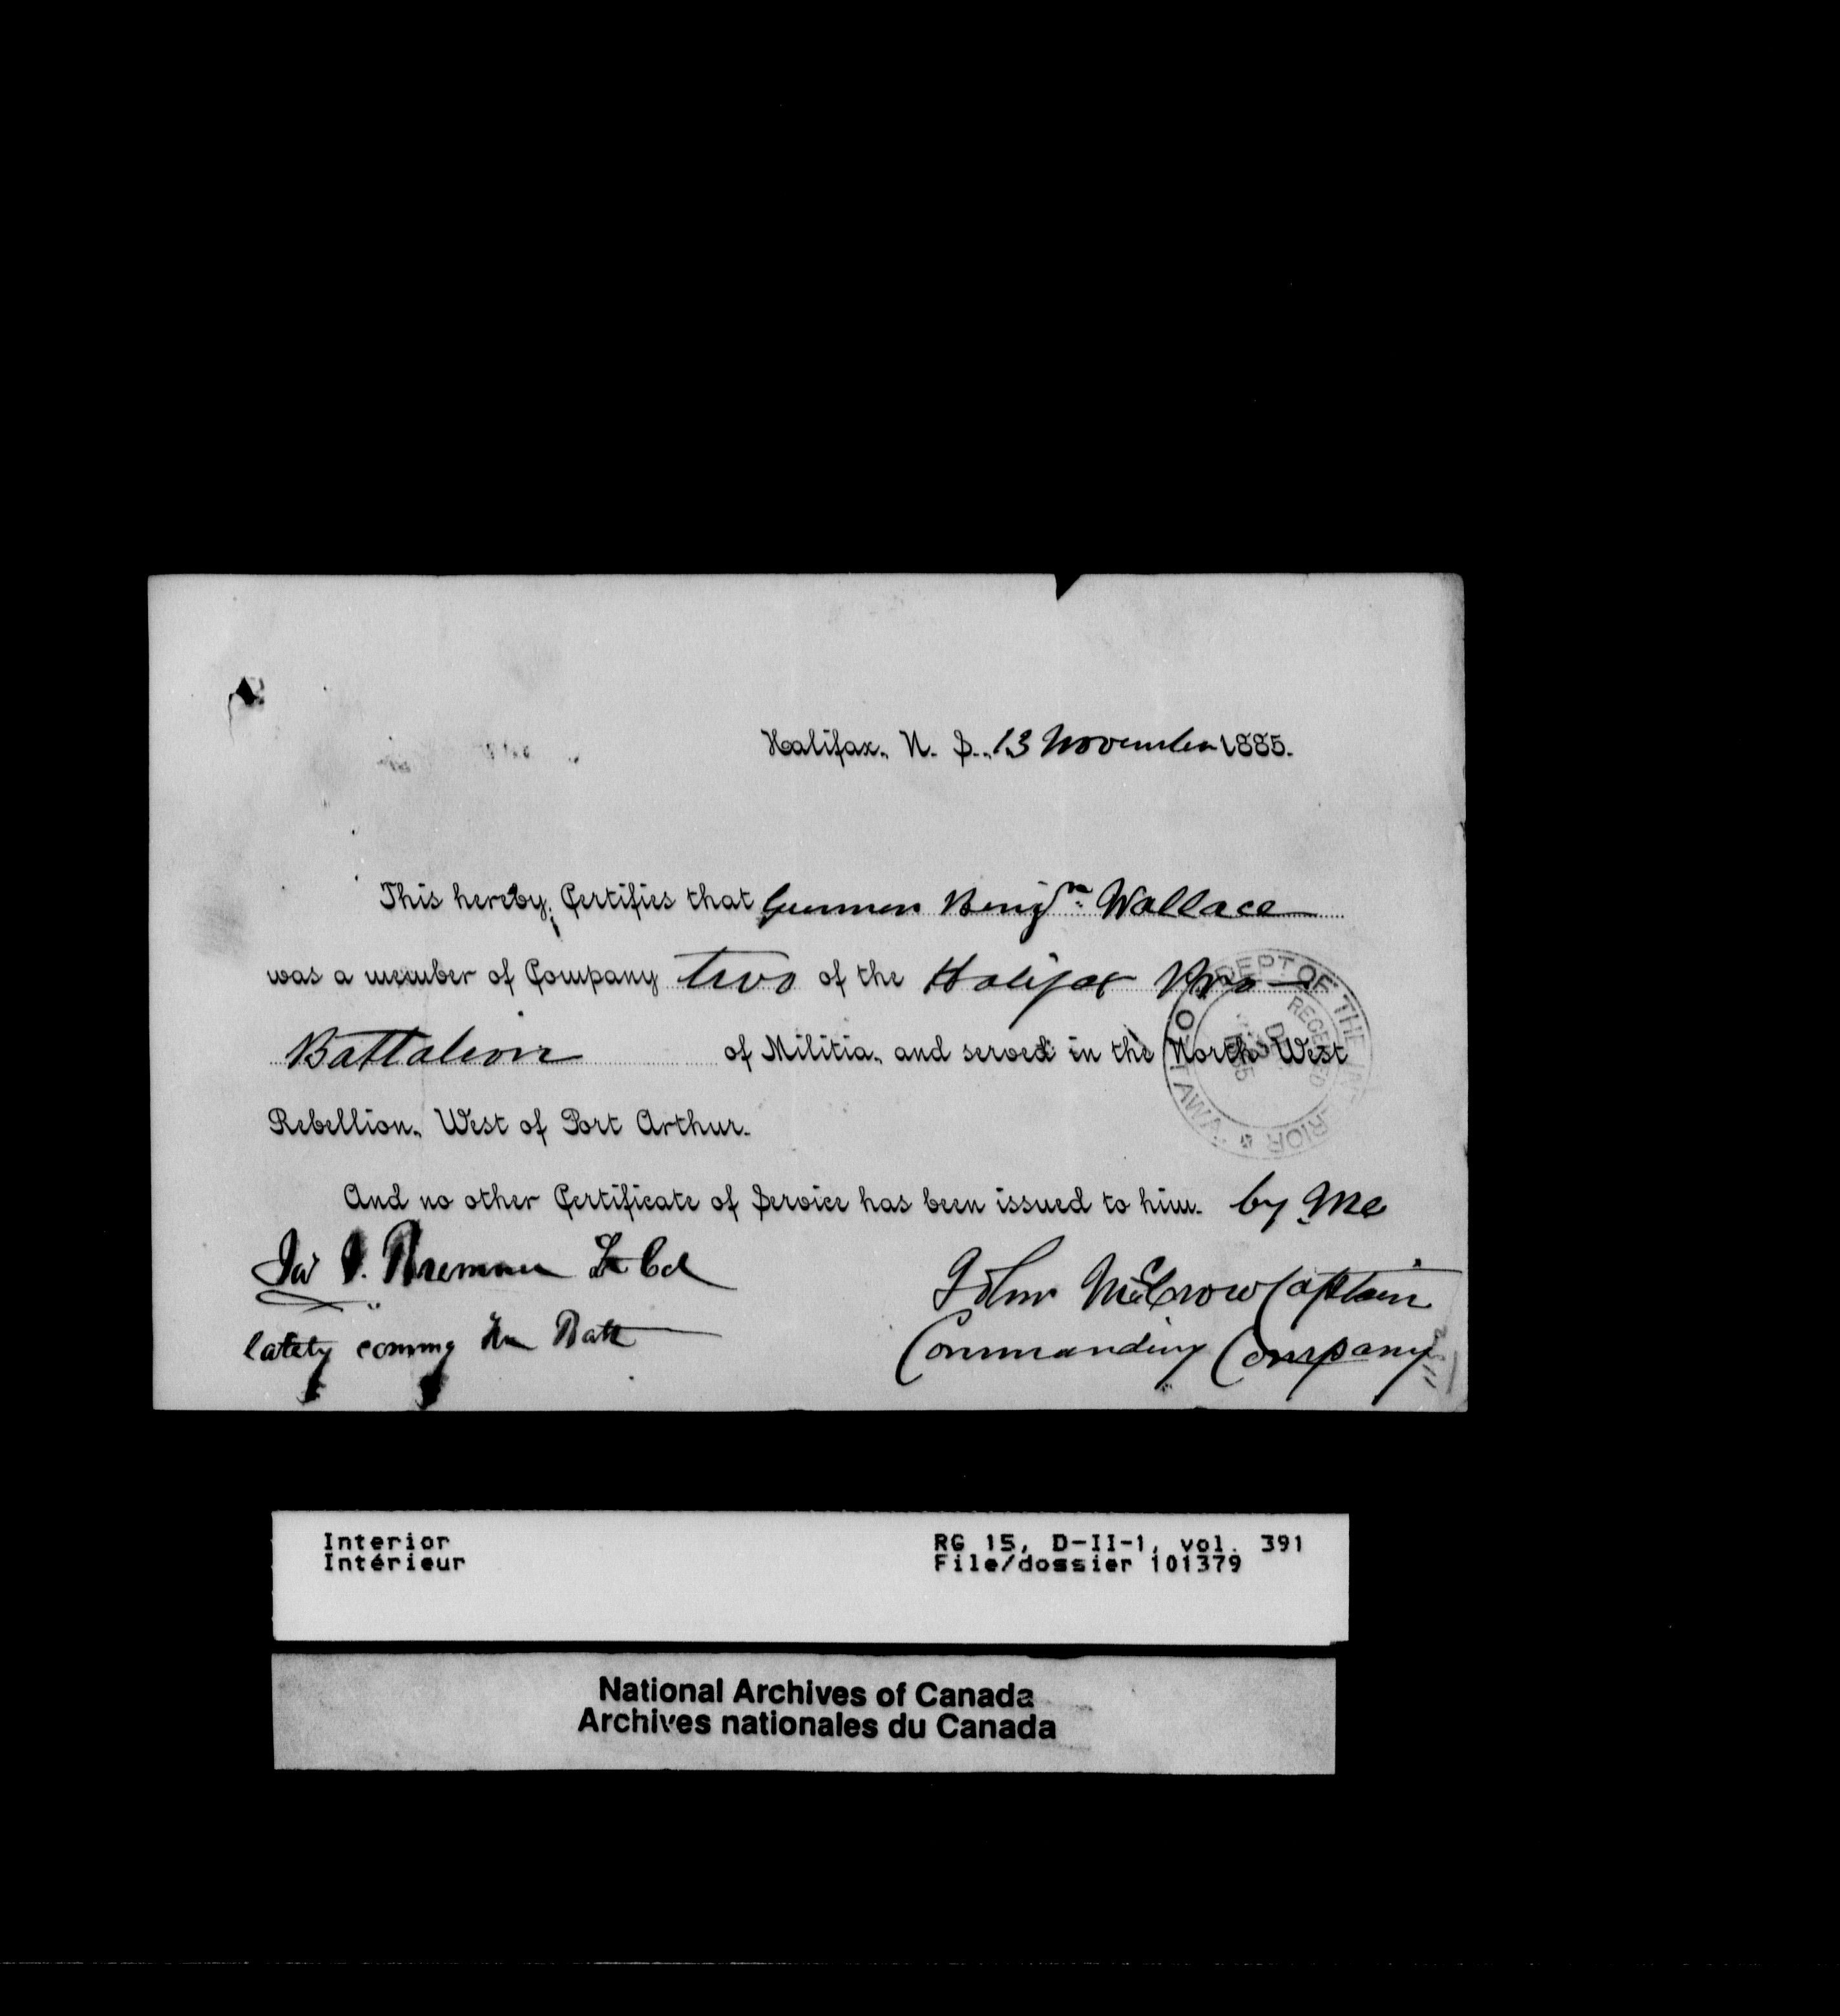 Halifax, N. S., 13 November 1885.
This hereby Certifies that Gunner Benjn Wallace
was a member of Company two of the Halifax Pro
Battalion of Militia, and served in the North West
Rebellion, West of Port Arthur.
And no other Certificate of Service has been issued to him. by Me
Jas J. Bremner Lt Col
lately commg Hx Batt
John McCrow Captain
Commanding Company
DEPT OF THE INTERIOR
OTTAWA
RECEIVED
Interior
Intérieur
RG 15, D-II-1, vol. 391
File/dossier 101379
National Archives of Canada
Archives nationales du Canada